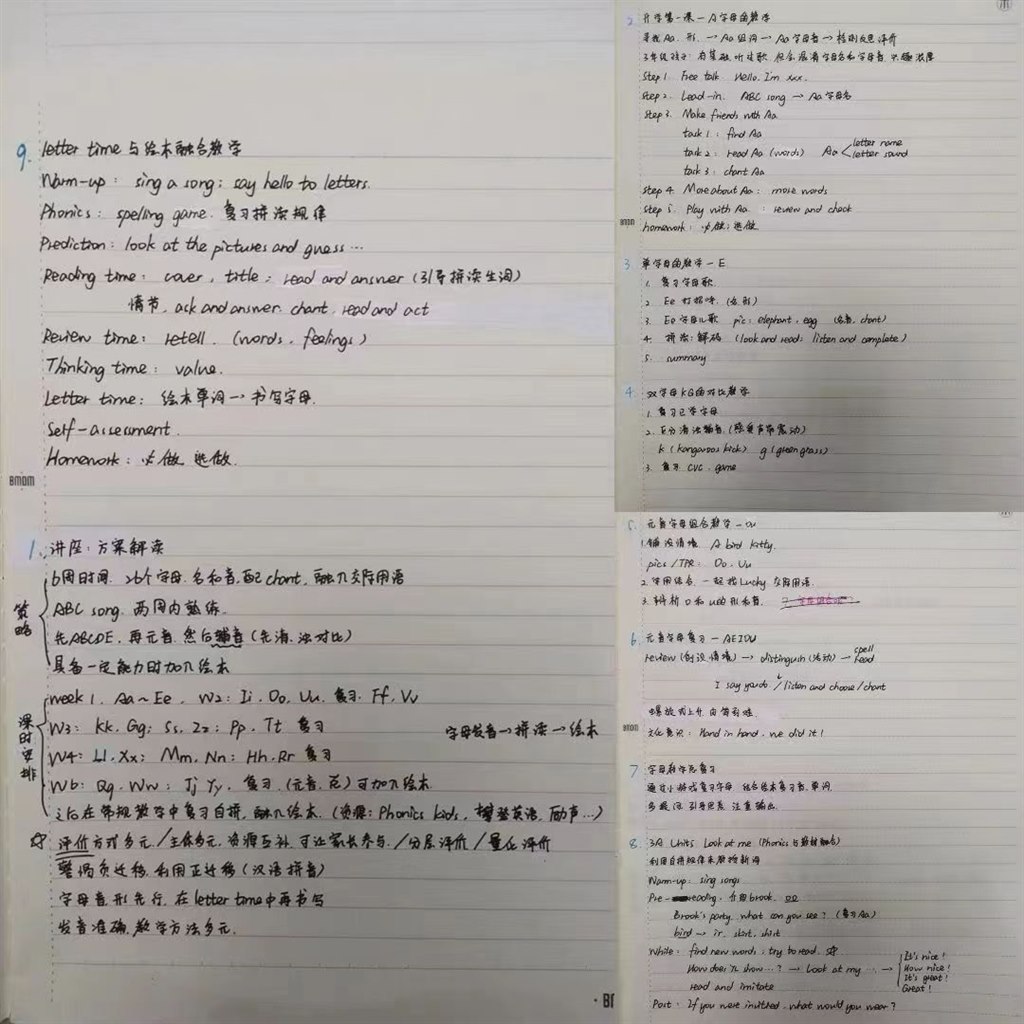 9. letter time 与绘本融合教学
Warm-up: sing a song; say hello to letters.
Phonics: spelling game. 复习拼读规律
Prediction: look at the pictures and guess…
Reading time: cover, title; read and answer (引导拼读生词)
情节, ask and answer. chant, read and act
Review time: retell. (words, feelings)
Thinking time: value.
Letter time: 绘本单词→书写字母.
Self-assessment.
Homework: 必做 选做.
BMDM
1. 讲座:方案解读
策略
6周时间, 26个字母, 名和音, 配chant, 融入交际用语
ABC song. 两周内熟练.
先ABCDE, 再元音, 然后辅音(先清、浊对比)
具备一定能力时加入绘本
课时安排
week 1, Aa~Ee, W2: Ii, Oo, Uu, 复习, Ff, Vv
W3: Kk, Gg; Ss, Zz; Pp, Tt 复习
字母发音→拼读→绘本
W4: Ll, Xx; Mm, Nn; Hh, Rr 复习
W6: Qq, Ww; Jj Yy, 复习 (元音、总) 可加入绘本
之后在常规教学中复习自拼, 融入绘本. (资源: Phonics kids, 攀登英语, 励声…)
☆ 评价方式多元/主体多元, 资源互补, 可让家长参与/分层评价/量化评价
警惕负迁移, 利用正迁移(汉语拼音)
字母音形先行, 在letter time中再书写
发音准确, 教学方法多元.
2. 开学第一课—A字母的教学
寻找Aa, 形 →Aa组词→Aa字母音→检测反思评价
3年级孩子: 有基础, 听过歌, 但会混淆字母名和字母音, 兴趣浓厚
Step 1. Free talk. Hello, I'm xxx.
Step 2. Lead-in. ABC song → Aa字母名
Step 3. Make friends with Aa
task 1: find Aa
task 2: read Aa (words) Aa < letter name
letter sound
task 3: chant Aa
Step 4. More about Aa: more words
Step 5. Play with Aa: review and check
homework: 必做, 选做
BMDM
3. 单字母的教学—E
1. 复习字母歌.
2. Ee 打招呼. (名, 形)
3. Ee字母儿歌 pic: elephant, egg (名音, chant)
4. 拼读; 解码 (look and read; listen and complete)
5. summary
4. 双字母KG的对比教学
1. 复习已学字母
2. 区分清浊辅音 (感受声带震动)
k (kangaroos kick) g (green grass)
3. 复习 CVC. game
5. 元音字母组合教学—ou
1. 铺设情境 A bird Kitty.
pics / TPR: Oo, Uu
2. 使用组合, 一起找Lucky, 交际用语.
3. 辨析 O和U的形和音.
6. 元音字母复习—AEIOU
review (创设情境) → distinguish (活动) → spell
read
I say you do / listen and choose / chant
螺旋式上升 由简到难
文化意识: Hand in hand, we did it!
BMDM
7 字母教学总复习
通过小游戏复习字母 结合绘本复习音, 单词
多提问, 引导思考, 注重输出
8. 3A Unit5 Look at me (Phonics与教材融合)
利用自拼规律来教授新词
Warm-up: sing songs
Pre-reading: 介绍brook. oo
Brook's party. what can you see? (复习Aa)
bird → ir. skirt, shirt
While: find new words; try to read. ☆
How does 儿 show…? → Look at my … →
It's nice!
How nice!
It's great!
Great!
read and imitate
Post: If you were invited, what would you wear?